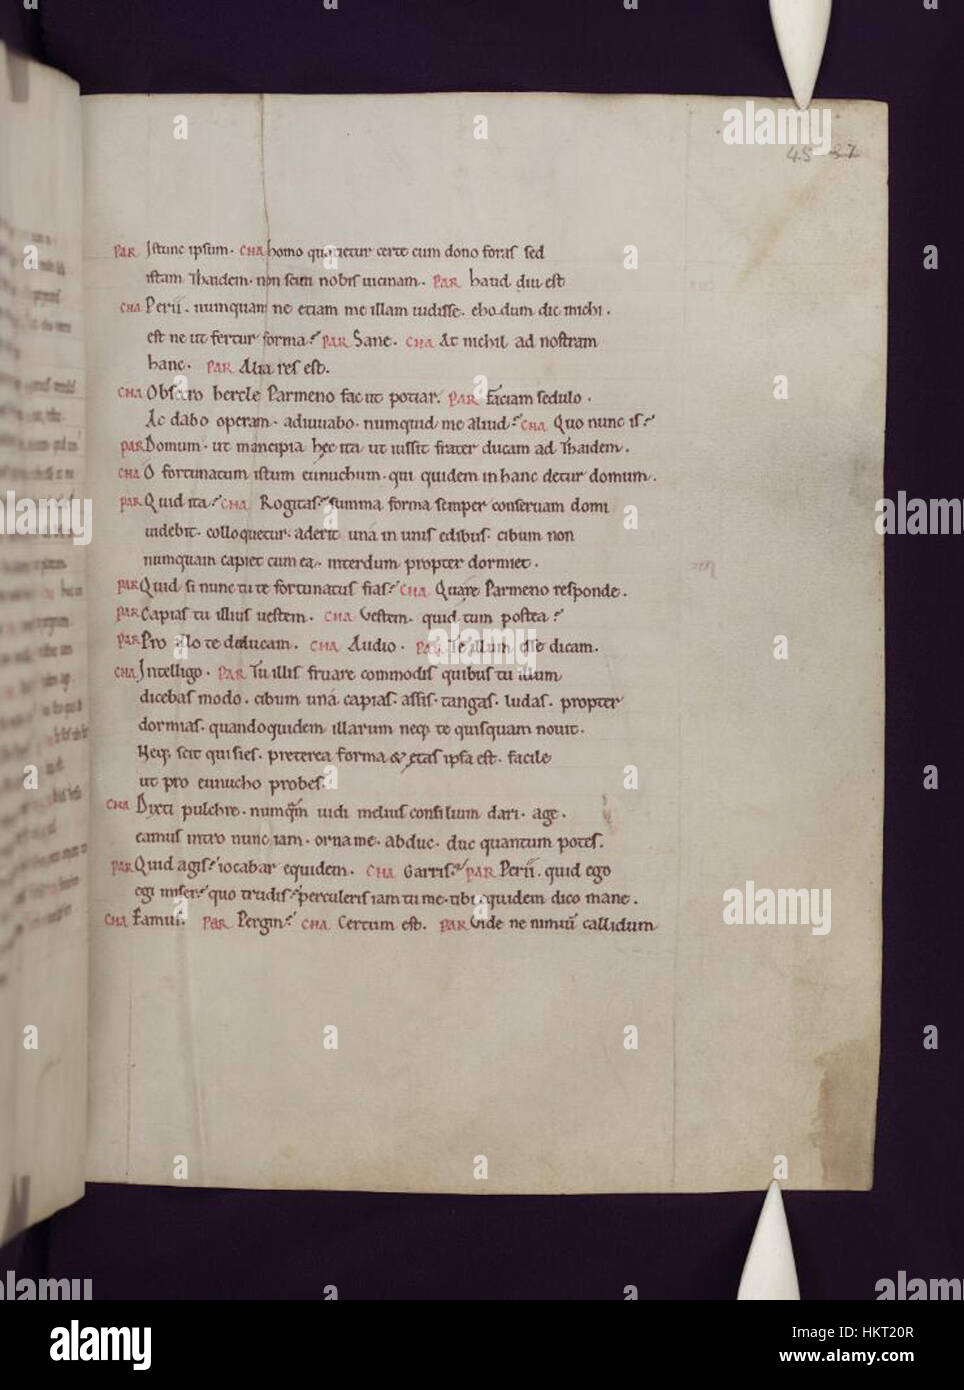 45 37
PAR Istunc ipsum. CHA homo quatietur certe cum dono foras sed
istam Thaidem. non scun nobis uicinam. PAR haud diu est
CHA Perii. numquam ne etiam me illam uidisse. eho dum dic michi.
est ne ut fertur forma? PAR Sane. CHA At nichil ad nostram
hanc. PAR Alia res est.
CHA Obsecro hercle Parmeno fac ut potiar. PAR Faciam sedulo.
Ac dabo operam. adiuuabo. numquid me aliud? CHA Quo nunc is?
PAR Domum. ut mancipia hęc ita ut iussit frater ducam ad Thaidem.
CHA O fortunatum istum eunuchum. qui quidem in hanc detur domum.
PAR Quid ita? CHA Rogitas? summa forma semper conseruam domi
uidebit. colloquetur. aderit una in unis edibus. cibum non
numquam capiet cum ea. interdum propter dormiet.
PAR Quid si nunc tu te fortunatus fias? CHA Quare Parmeno responde.
PAR Capias tu illius uestem. CHA Vestem. quid tum postea?
PAR Pro illo te deducam. CHA Audio. PAR Te illum esse dicam.
CHA Intelligo. PAR Tu illis fruare commodis quibus tu illum
dicebas modo. cibum una capias. assis. tangas. ludas. propter
dormias. quandoquidem illarum neq; te quisquam nouit.
Neq; scit qui sies. preterea forma & ętas ipsa est. facile
ut pro eunucho probes.
CHA Dixti pulchre. numqm uidi melius consilium dari. age.
eamus intro nunc iam. orna me. abduc. duc quantum potes.
PAR Quid agis? iocabar equidem. CHA Garris? PAR Perii. quid ego
egi miser? quo trudis? perculeris iam tu me. tibi equidem dico mane.
CHA Eamus. PAR Pergin? CHA Certum est. PAR Vide ne nimiū callidum
alamy
Image ID: HKT20R
www.alamy.com